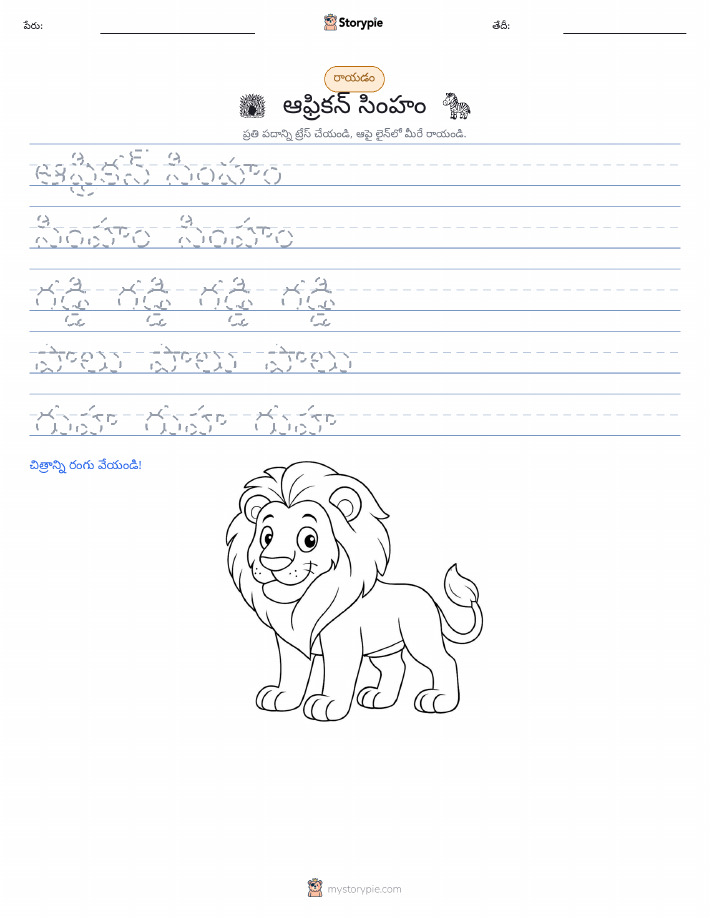 పేరు:
Storypie
తేదీ:
రాయడం
ఆఫ్రికన్ సింహం
ప్రతి పదాన్ని ట్రేస్ చేయండి, ఆపై లైన్‌లో మీరే రాయండి.
ఆఫ్రికన్ సింహం
సింహం సింహం
గడ్డి గడ్డి గడ్డి గడ్డి
పాలు పాలు పాలు
గుహ గుహ గుహ
చిత్రాన్ని రంగు వేయండి!
mystorypie.com